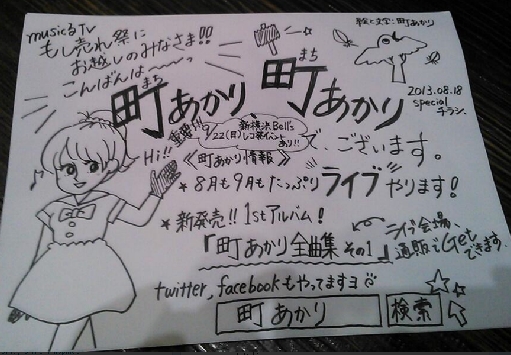 musicるTV
もし売れ祭に
お越しのみなさま!!
こんばんは〜〜〜っ
絵と文字:町あかり
まち
町あかり
まち
町あかり
2013.08.18
special
チラシ.
で、ございます。
重要!!!
新横浜Bell's
9/22(日)レコ発イベント
あり!!
Hi!!
《町あかり情報》
★8月も9月もたっぷりライブやります!
★新発売!!1stアルバム!
『町あかり全曲集 その1』
ライブ会場、
通販でGet
できます.
twitter, facebookもやってますヨ
町あかり 検索